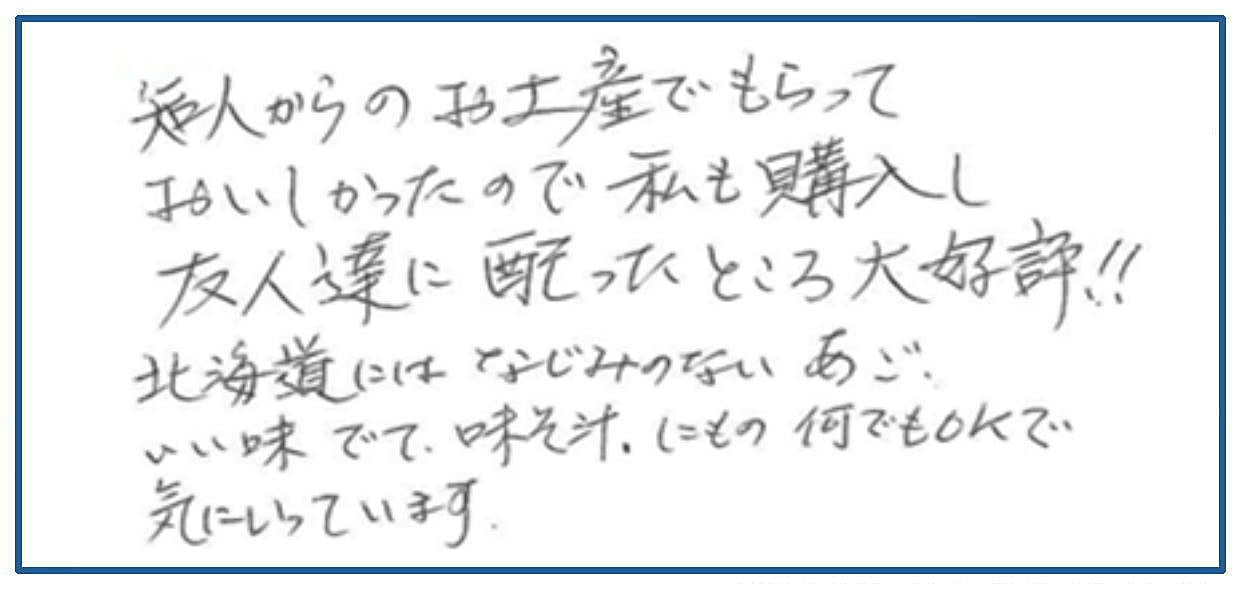 知人からのお土産でもらって
おいしかったので私も購入し
友人達に配ったところ大好評!!
北海道にはなじみのないあご、
いい味でて、味そ汁、にもの何でもOKで
気にいっています.